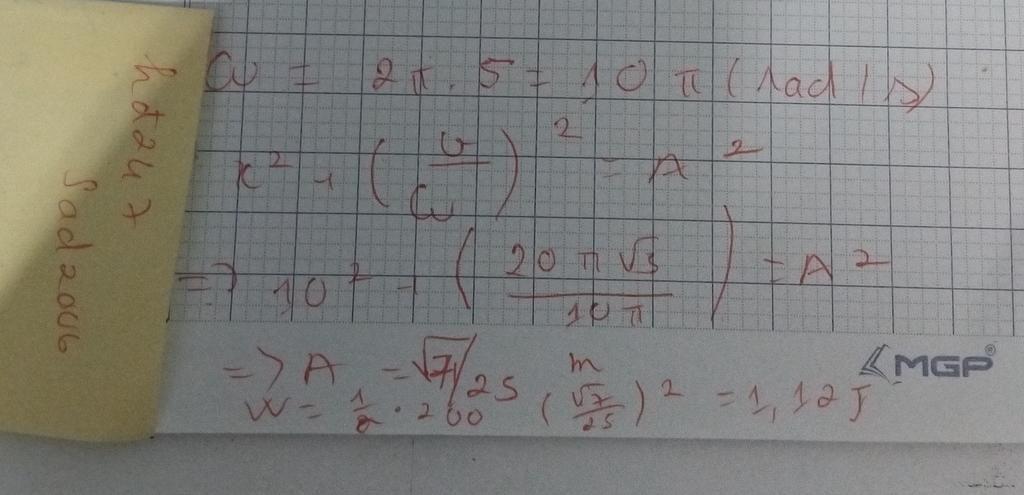 hd247
Sad2006
ω = 2π.5 = 10π(rad/s)
x² + (v/ω)² = A²
=> 10² + (20π√3/10π) = A²
=> A = √7/25 m
MGP®
W = 1/2 . 200 (√7/25)² = 1,12J